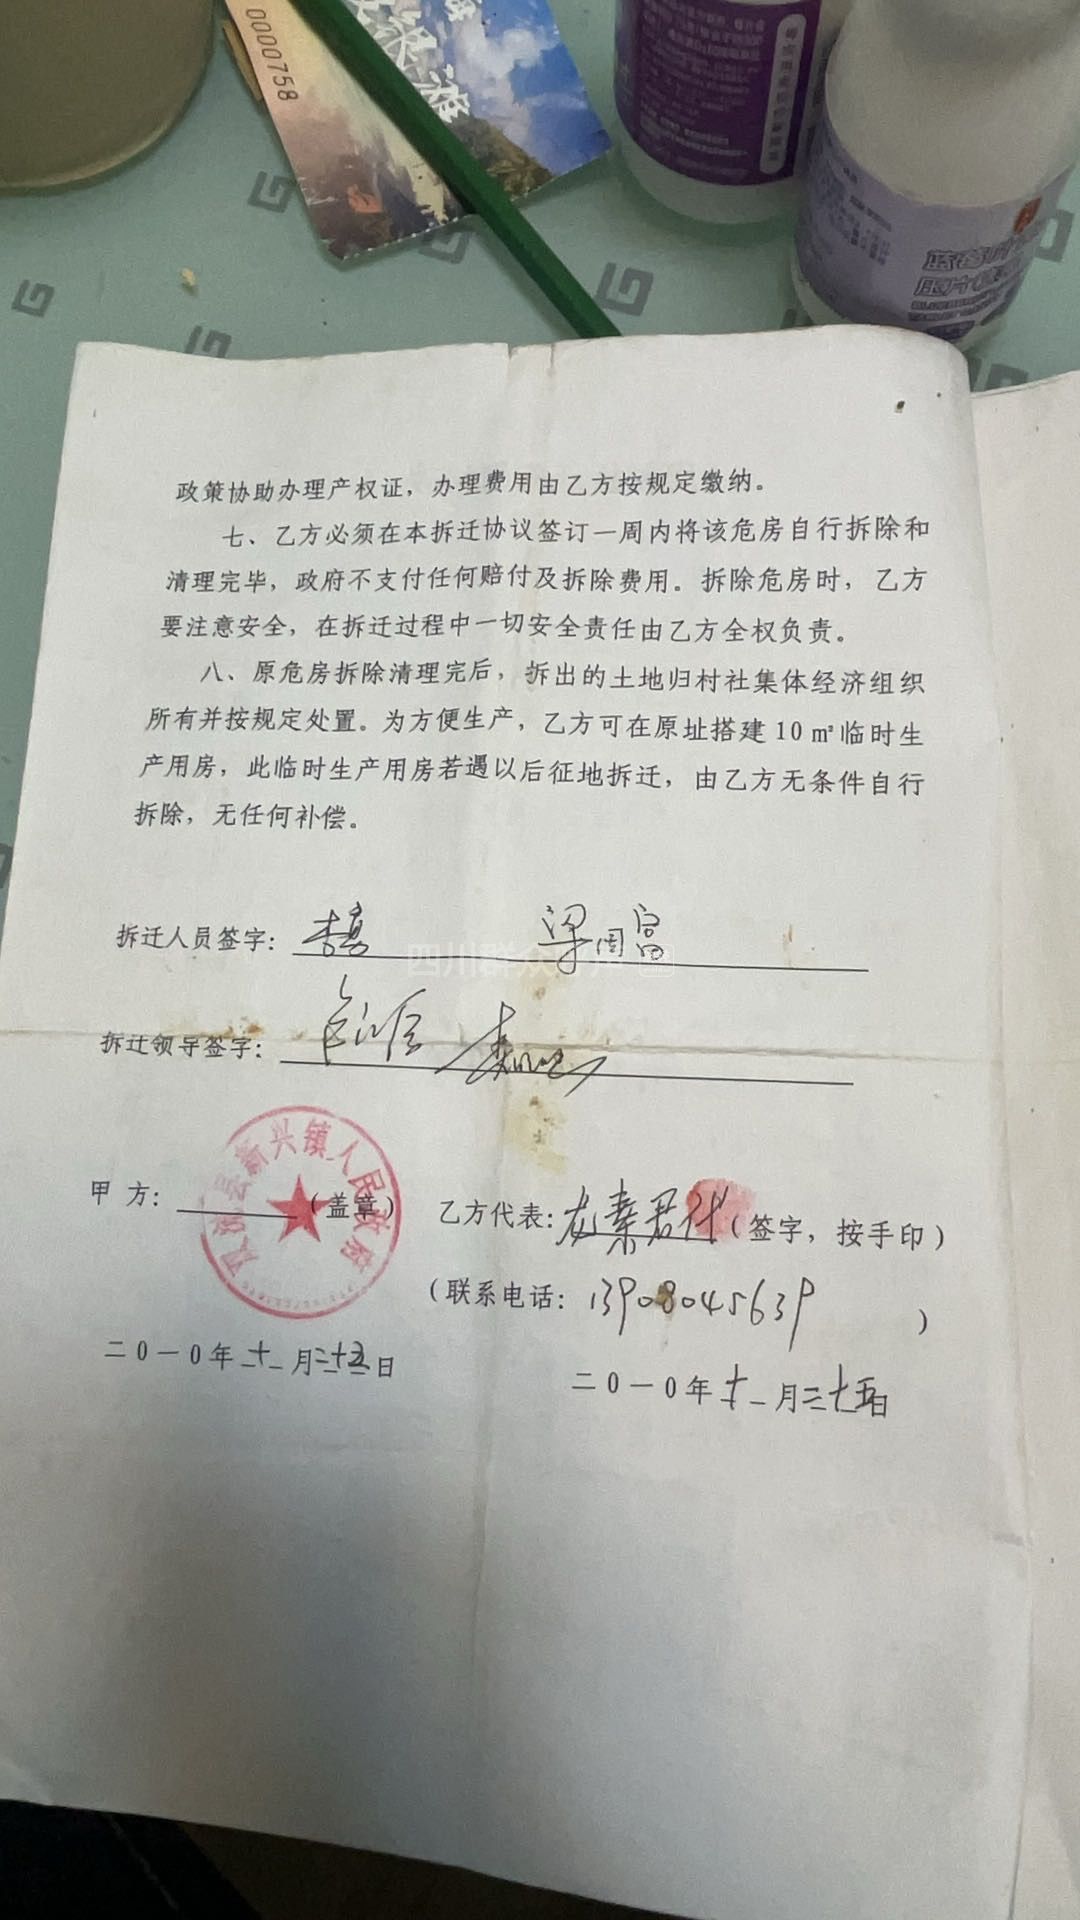 0000758
政策协助办理产权证，办理费用由乙方按规定缴纳。
七、乙方必须在本拆迁协议签订一周内将该危房自行拆除和
清理完毕，政府不支付任何赔付及拆除费用。拆除危房时，乙方
要注意安全，在拆迁过程中一切安全责任由乙方全权负责。
八、原危房拆除清理完后，拆出的土地归村社集体经济组织
所有并按规定处置。为方便生产，乙方可在原址搭建10㎡临时生
产用房，此临时生产用房若遇以后征地拆迁，由乙方无条件自行
拆除，无任何补偿。
拆迁人员签字： 梁国富
四川群众
拆迁领导签字：
新兴镇人民政府
甲 方： （盖章）
乙方代表： 秦君 （签字，按手印）
（联系电话：13908045639 ）
二0一0年十一月二十五日
二0一0年十一月二十五日